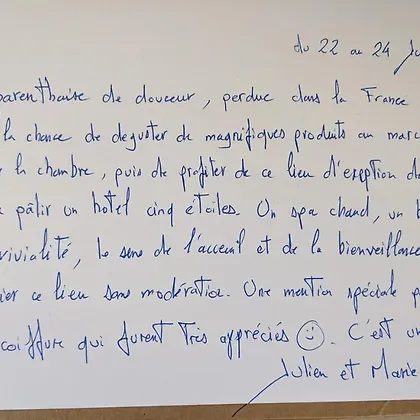 du 22 au 24 Ju
parenthaise de douceur, perdue dans la France
la chance de deguster de magnifiques produits au marc
la chambre, puis de profiter de ce lieu d'exeption d
pâlir un hotel cinq étoiles. Un spa chaud, un b
vivialité, le sens de l'acceuil et de la bienveillance
ier ce lieu sans modération. Une mention spéciale p
coiffure qui furent très appréciés ☺. C'est un
Julien et Marie